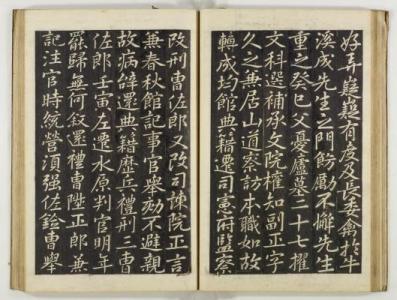 好弄嶷嶷有度及長委禽於牛
溪成先生之門飭勵不懈先生
重之癸巳父憂廬墓二十七擢
文科選補承文院權知副正字
久之兼居山道察訪本職如故
轉成均館典籍遷司憲府監察
改刑曹佐郎又改司諫院正言
兼春秋館記事官舉劾不避親
故病辭還典籍歷兵禮刑三曹
佐郎壬寅左遷水原判官明年
罷歸無何叙還禮曹陞正郎兼
記注官時統營須強佐銓曹舉